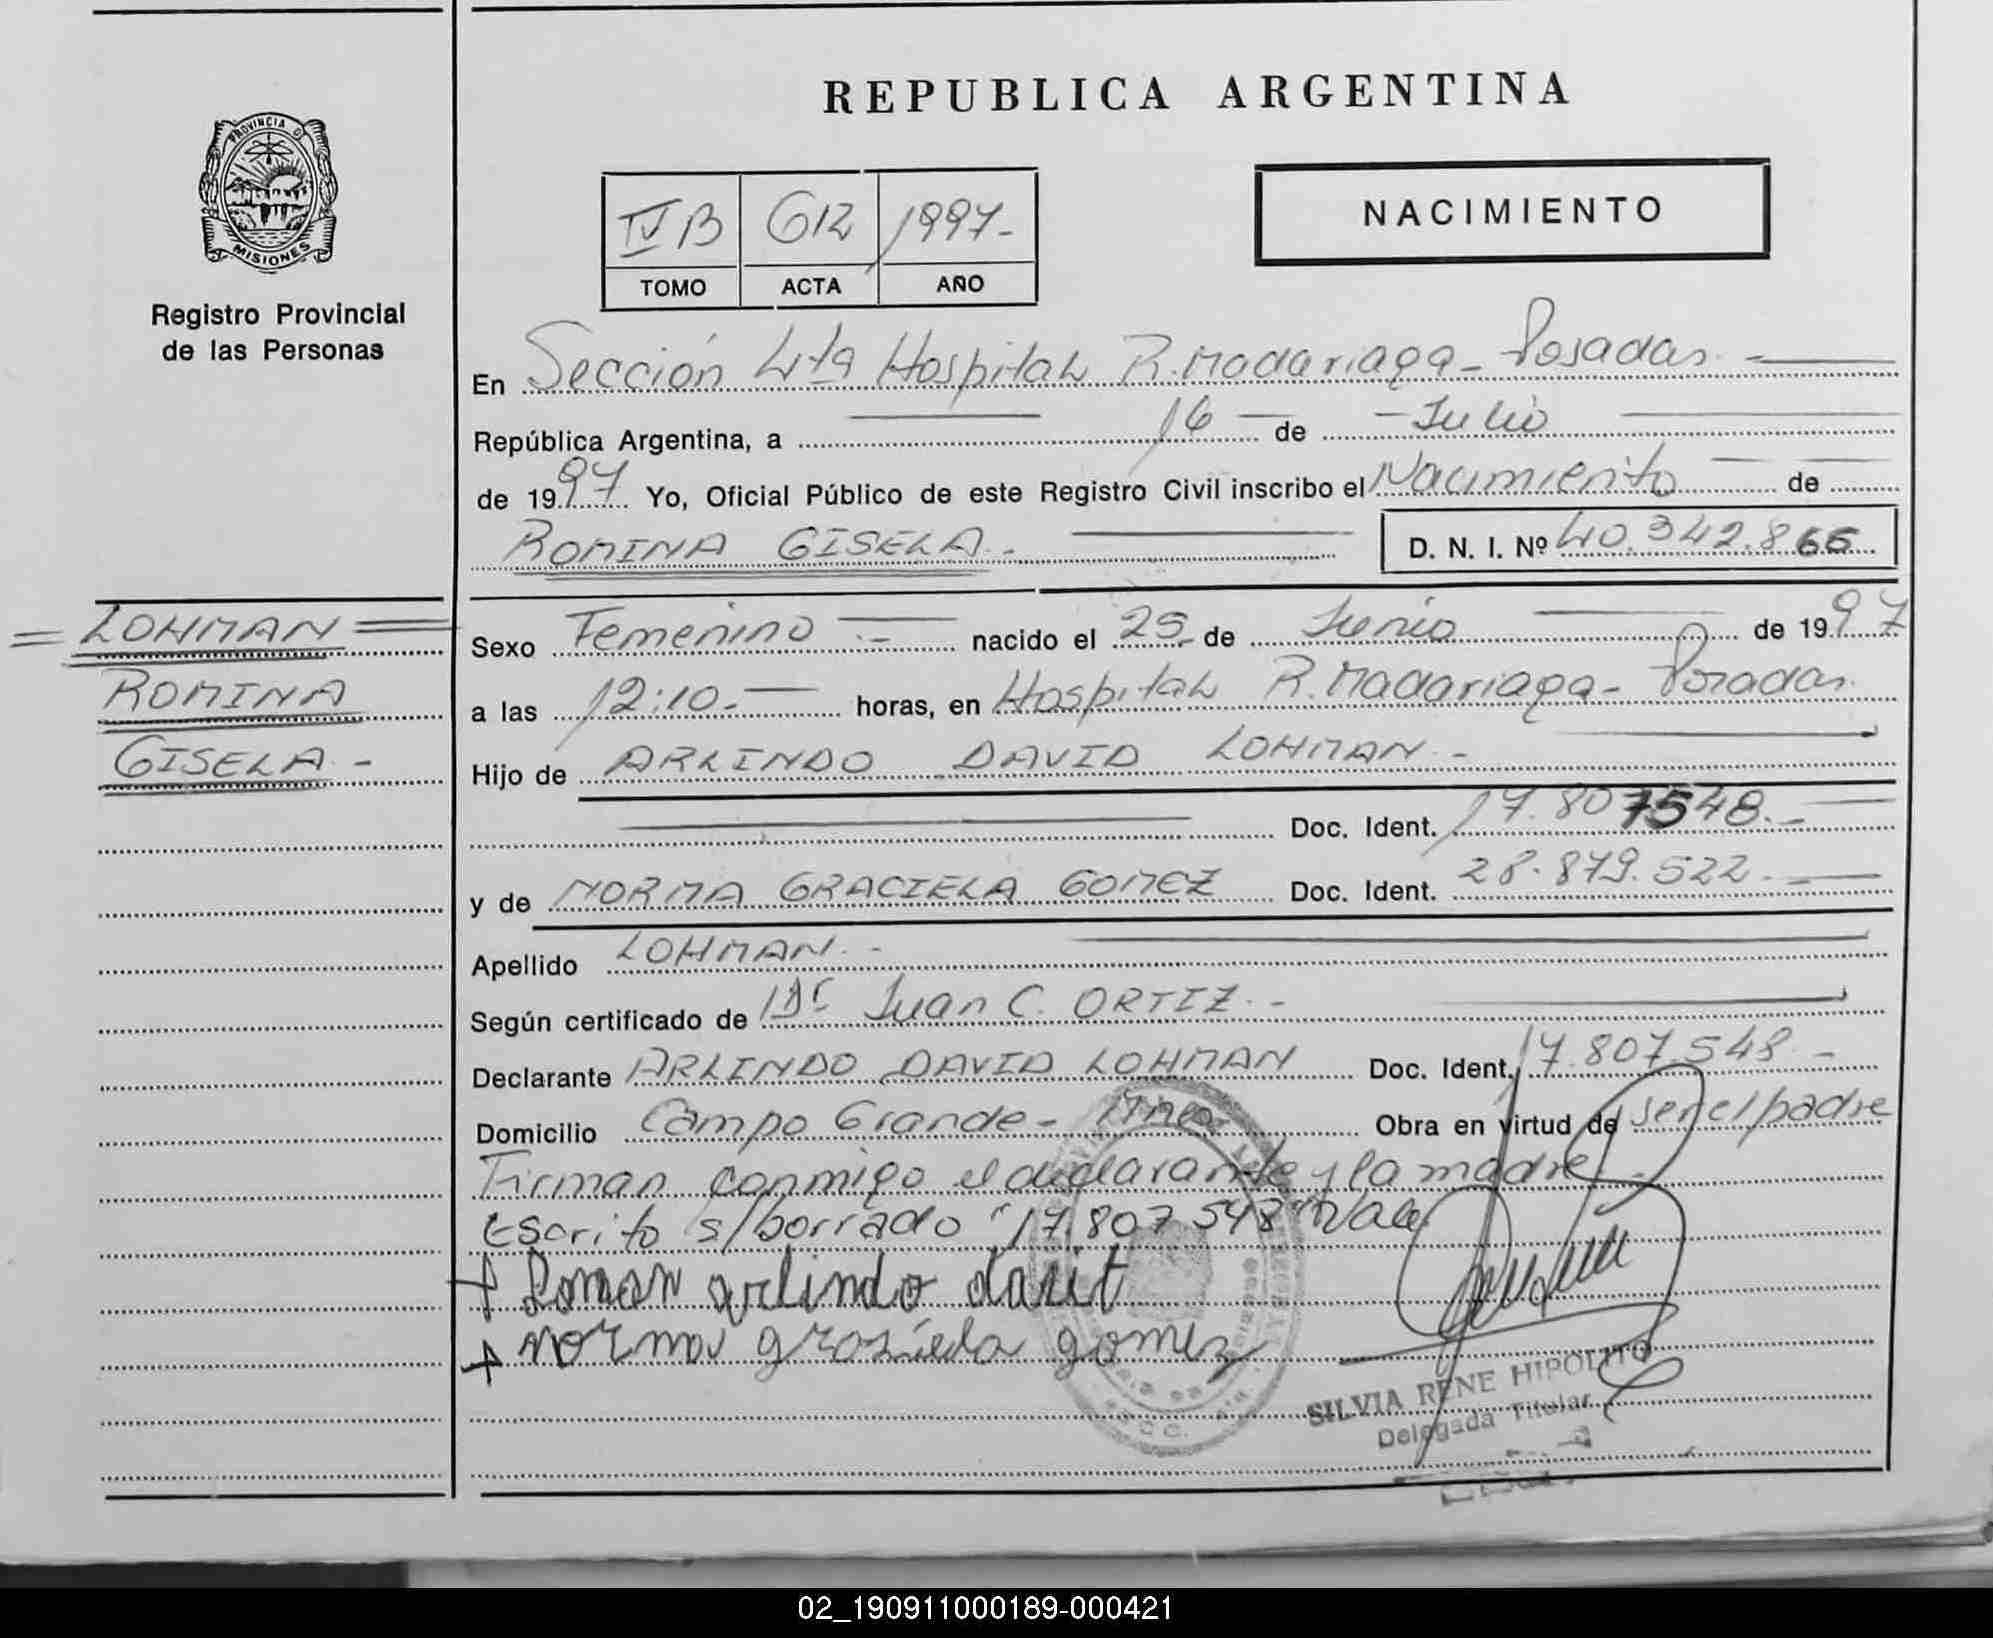 REPUBLICA ARGENTINA
PROVINCIA D
MISIONES
Registro Provincial
de las Personas
IV B 612 1997-
TOMO ACTA AÑO
NACIMIENTO
En Sección 4ta Hospital R. Madariaga - Posadas.
República Argentina, a 16 de Julio
de 1997 Yo, Oficial Público de este Registro Civil inscribo el Nacimiento de
ROMINA GISELA.- D. N. I. Nº 40.342.866
LOHMAN
ROMINA
GISELA.-
Sexo Femenino nacido el 25 de Junio de 1997
a las 12:10.- horas, en Hospital R. Madariaga - Posadas.
Hijo de ARLINDO DAVID LOHMAN.-
Doc. Ident. 17.807548.-
y de NORMA GRACIELA GOMEZ Doc. Ident. 28.879.522.-
Apellido LOHMAN.-
Según certificado de Dr Juan C. ORTIZ.-
Declarante ARLINDO DAVID LOHMAN Doc. Ident. 17.807.548.-
Domicilio Campo Grande - Mnes. Obra en virtud de ser el padre
Firman conmigo el declarante y la madre.
Escrito s/borrado "17.807.548" Vale
+ Loman arlindo davit
+ norma grasiela gomez
SILVIA RENE HIPOLITO
Delegada Titular
02_190911000189-000421